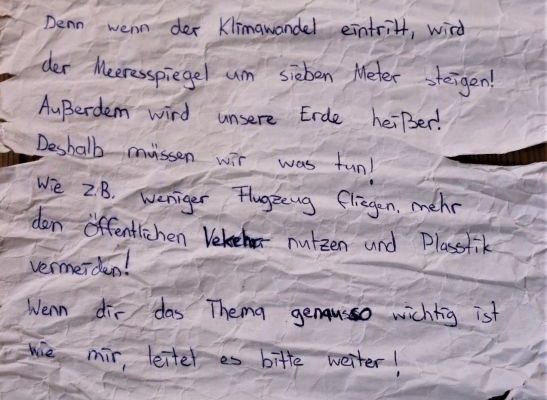 Denn wenn der Klimawandel eintritt, wird
der Meeresspiegel um sieben Meter steigen!
Außerdem wird unsere Erde heißer!
Deshalb müssen wir was tun!
Wie z.B. weniger Flugzeug fliegen, mehr
den öffentlichen Vekehr nutzen und Plasstik
vermeiden!
Wenn dir das Thema genauso wichtig ist
wie mir, leitet es bitte weiter!